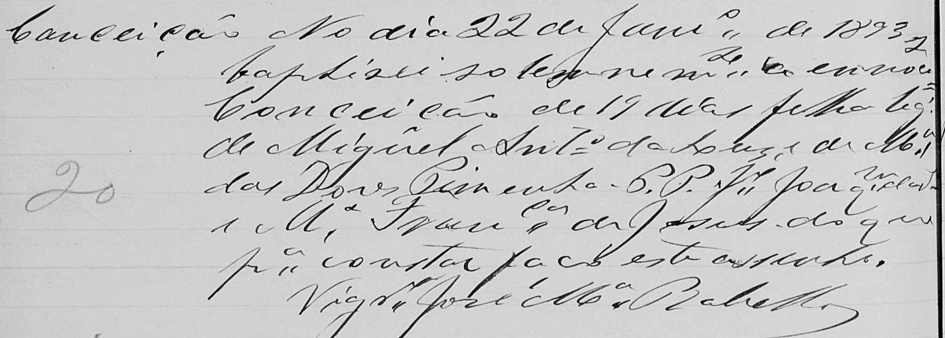 Conceição No dia 22 de Janrº de 1893
baptizei solemnemte a innocte
Conceição de 19 dias filha leg.
de Miguel Antº da Luz, e de Mª
das Dores Pimenta. P.P. Jé Joaqm da
e Mª Francca de Jesus. do que
pª constar faço este assento.
20
Vigrº José Mª Rabello